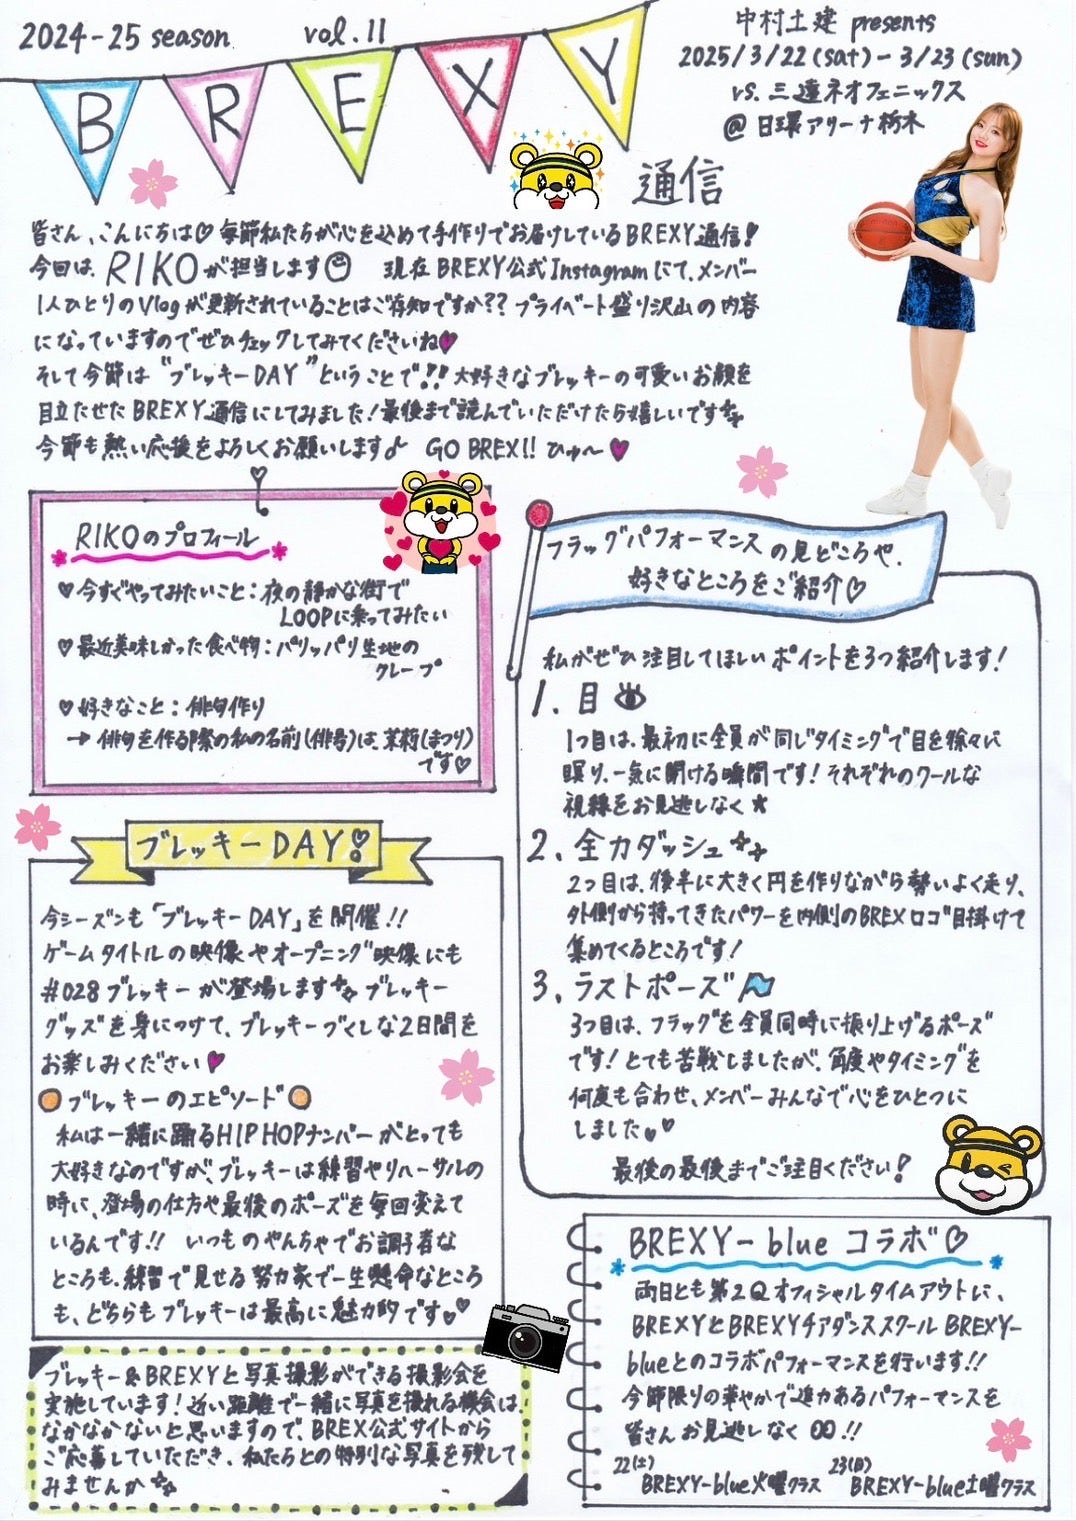 2024-25 season vol.11
BREXY
通信
中村土建 presents
2025/3/22(sat)-3/23(sun)
vs. 三遠ネオフェニックス
@日環アリーナ栃木
皆さん、こんにちは♡毎節私たちが心を込めて手作りでお届けしているBREXY通信!
今回は、RIKOが担当します☺ 現在BREXY公式Instagramにて、メンバー
1人ひとりのVlogが更新されていることはご存知ですか??プライベート盛り沢山の内容
になっていますのでぜひチェックしてみてくださいね♥
そして今節は"ブレッキーDAY"ということで!!大好きなブレッキーの可愛いお顔を
目立たせたBREXY通信にしてみました!最後まで読んでいただけたら嬉しいです✨
今節も熱い応援をよろしくお願いします♪ GO BREX!! ひゅ〜♥
RIKOのプロフィール
♡今すぐやってみたいこと:夜の静かな街で
LOOPに乗ってみたい
♡最近美味しかった食べ物:パリッパリ生地の
クレープ
♡好きなこと:俳句作り
→俳句を作る際の私の名前(俳号)は、茉莉(まつり)
です♡
ブレッキーDAY!
今シーズンも「ブレッキーDAY」を開催!!
ゲームタイトルの映像やオープニング映像にも
#028ブレッキーが登場します✨ブレッキー
グッズを身につけて、ブレッキーづくしな2日間を
お楽しみください♥
ブレッキーのエピソード
私は一緒に踊るHIPHOPナンバーがとっても
大好きなのですが、ブレッキーは練習やリハーサルの
時に、登場の仕方や最後のポーズを毎回変えて
いるんです!! いつものやんちゃでお調子者な
ところも、練習で見せる努力家で一生懸命なところ
も、どちらもブレッキーは最高に魅力的です♥♡
ブレッキー&BREXYと写真撮影ができる撮影会を
実施しています!近い距離で一緒に写真を撮れる機会は
なかなかないと思いますので、BREX公式サイトから
ご応募していただき、私たちとの特別な写真を残して
みませんか✨
フラッグパフォーマンスの見どころや、
好きなところをご紹介♡
私がぜひ注目してほしいポイントを3つ紹介します!
1. 目
1つ目は、最初に全員が同じタイミングで目を徐々に
瞑り、一気に開ける瞬間です!それぞれのクールな
視線をお見逃しなく★
2. 全力ダッシュ✨
2つ目は、後半に大きく円を作りながら勢いよく走り、
外側から持ってきたパワーを内側のBREXロゴ目掛けて
集めてくるところです!
3. ラストポーズ
3つ目は、フラッグを全員同時に振り上げるポーズ
です!とても苦戦しましたが、角度やタイミングを
何度も合わせ、メンバーみんなで心をひとつに
しました♥♡
最後の最後までご注目ください!
BREXY-blueコラボ♡
両日とも第2Qオフィシャルタイムアウトに、
BREXYとBREXYチアダンススクールBREXY-
blueとのコラボパフォーマンスを行います!!
今節限りの華やかで迫力あるパフォーマンスを
皆さんお見逃しなく!!
22(土) 23(日)
BREXY-blue火曜クラス BREXY-blue土曜クラス